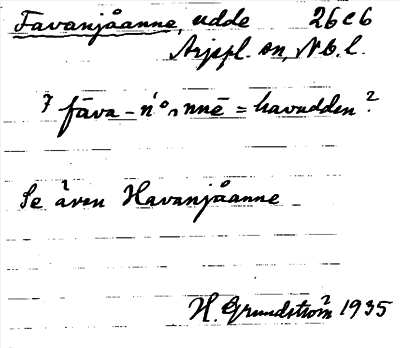 Favanjåanne, udde 26C6
Arjepl. sn, Nb. l.
fāva-n'å₁nnē = havudden?
Se även Havanjåanne
H. Grundström 1935